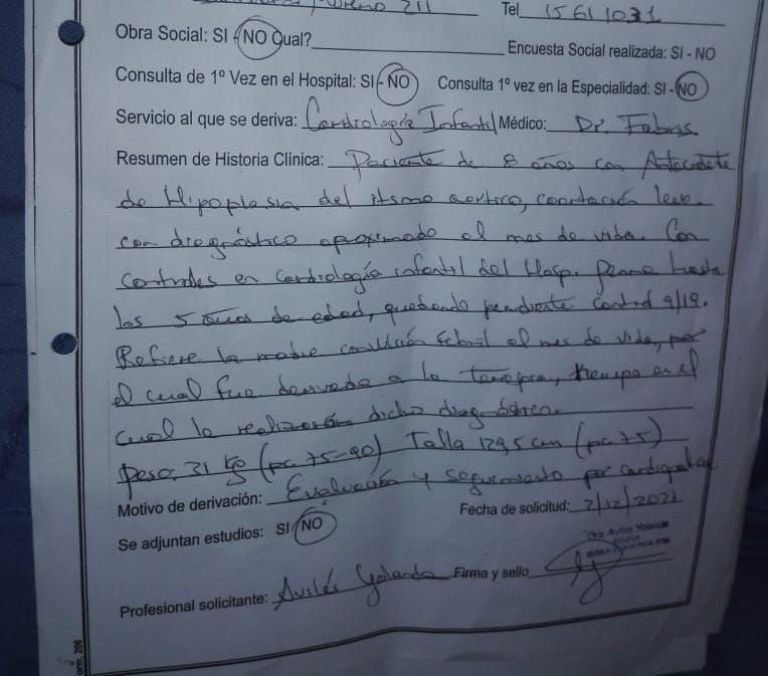 211 Tel 15611031
Obra Social: SI - NO Qual? Encuesta Social realizada: SI - NO
Consulta de 1º Vez en el Hospital: SI - NO Consulta 1º vez en la Especialidad: SI - NO
Servicio al que se deriva: Cardiología Infantil Médico: Dr. Fabris.
Resumen de Historia Clinica: Paciente de 8 años con Antecedente
de Hipoplasia del itsmo aortico, coartación leve
con diagnóstico aproximado al mes de vida. Con
controles en cardiología infantil del Hosp. Penna hasta
los 5 años de edad, quedando pendiente control 9/19.
Refiere la madre convulsión febril al mes de vida, por
el cual fue derivada a la terapia, tiempo en el
cual le realizaron dicho diagnóstico.
Peso: 31 kg (pc 75-90) Talla 129,5 cm (pc 75)
Motivo de derivación: Evaluación y seguimiento por cardiología
Fecha de solicitud: 2/12/2021
Se adjuntan estudios: SI - NO
Profesional solicitante: Avilés Yolanda Firma y sello
orm. 206